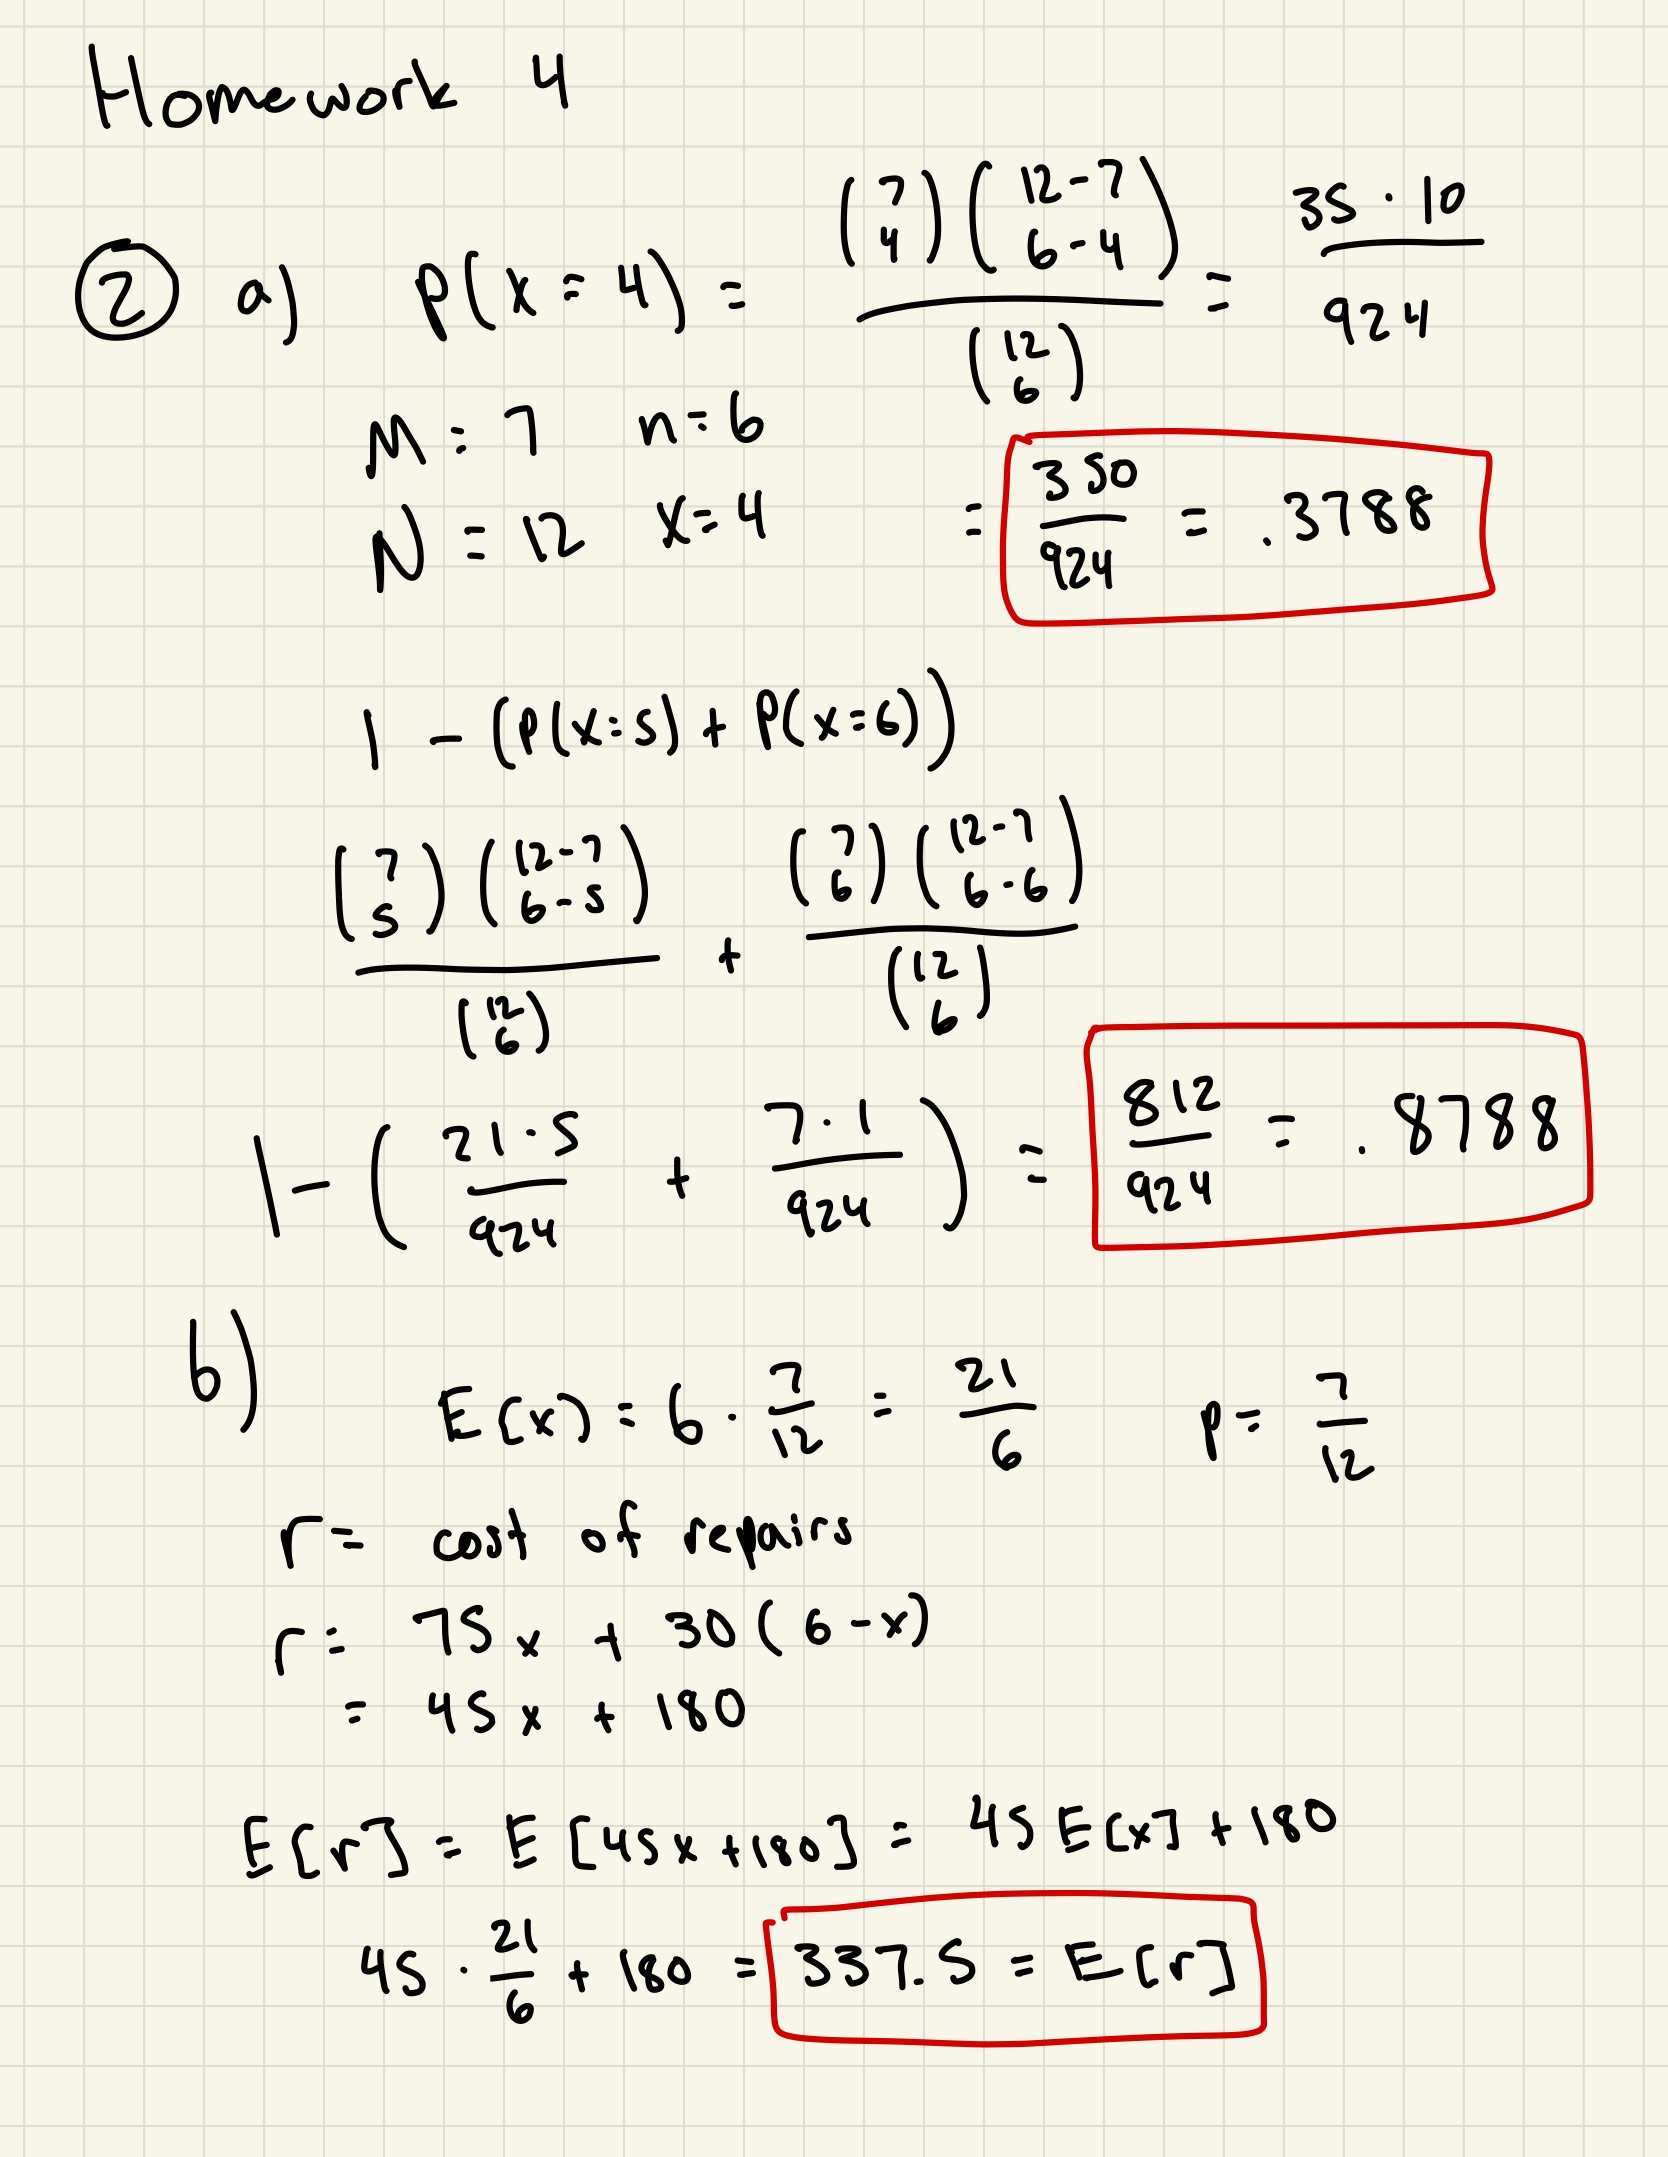 Homework 4
② a) P(x = 4) = (7 4)(12-7 6-4) / (12 6) = 35 · 10 / 924
M = 7 n = 6
N = 12 x = 4
= 350/924 = .3788
1 - (P(x=5) + P(x=6))
(7 5)(12-7 6-5) / (12 6) + (7 6)(12-7 6-6) / (12 6)
1 - (21·5/924 + 7·1/924) = 812/924 = .8788
b) E[x] = 6 · 7/12 = 21/6 p = 7/12
r = cost of repairs
r = 75x + 30(6-x)
= 45x + 180
E[r] = E[45x + 180] = 45E[x] + 180
45 · 21/6 + 180 = 337.5 = E[r]